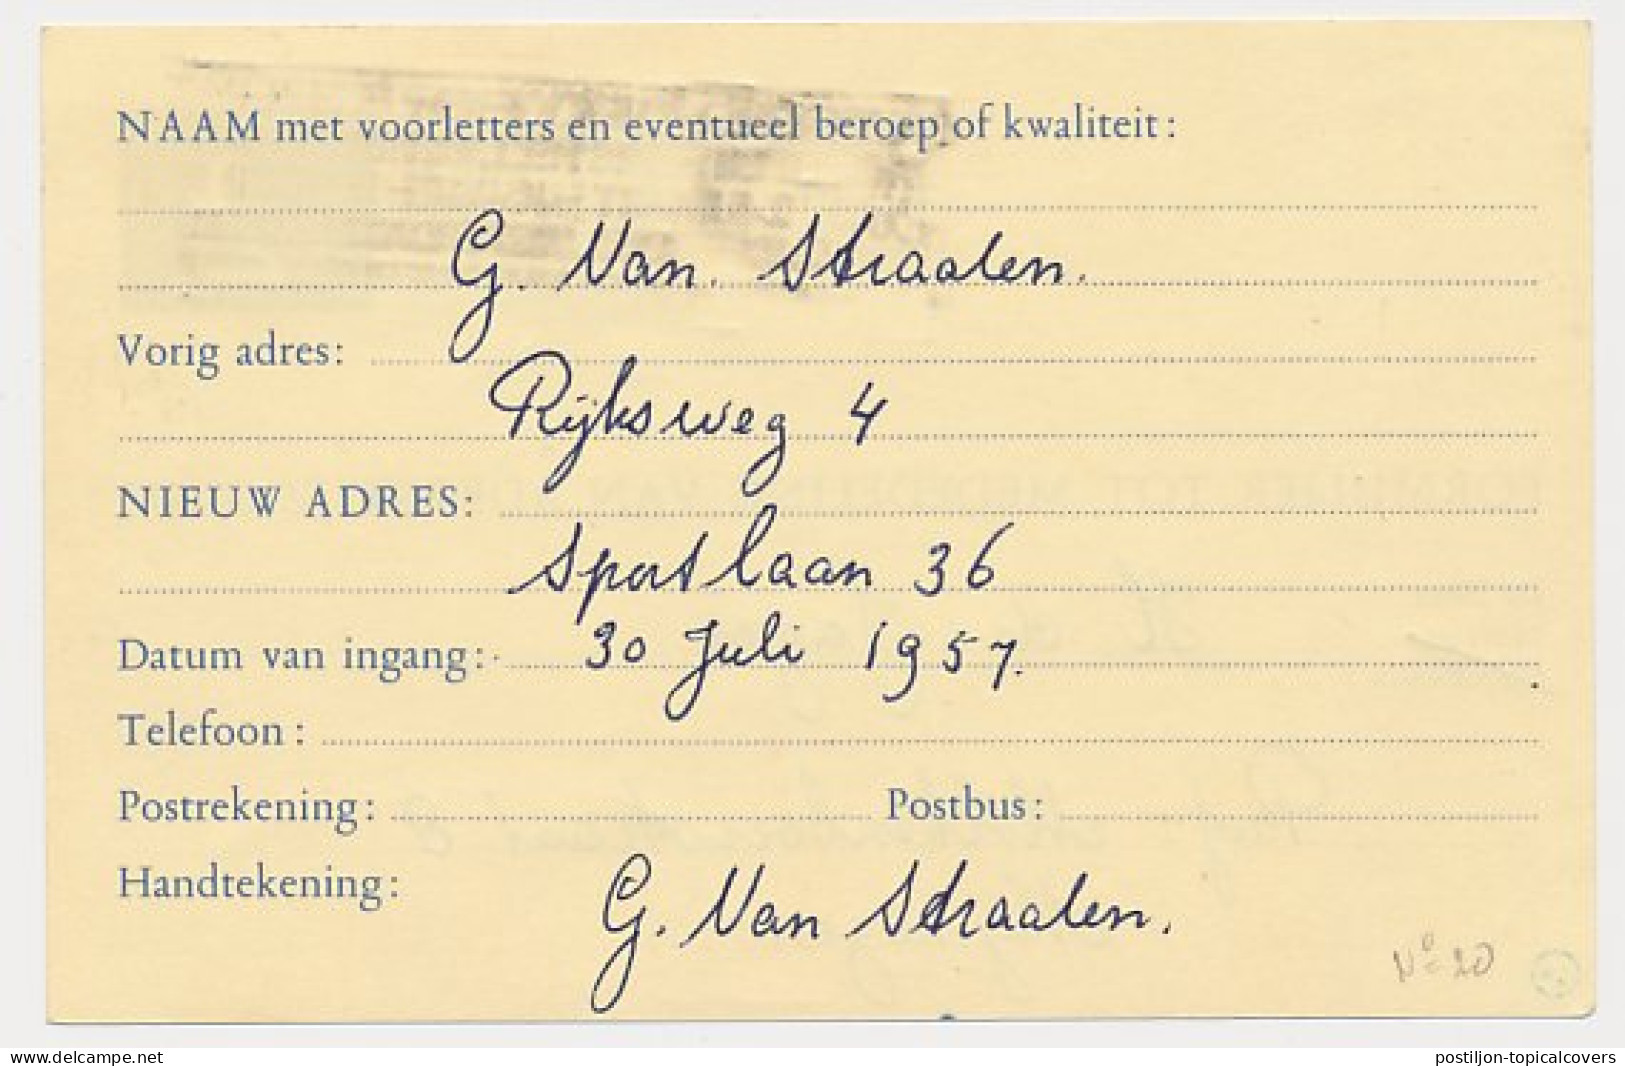 NAAM met voorletters en eventueel beroep of kwaliteit:
G. Van. Straalen.
Vorig adres:
Rijksweg 4
NIEUW ADRES:
Sportlaan 36
Datum van ingang: 30 Juli 1957.
Telefoon:
Postrekening: Postbus:
Handtekening: G. Van Straalen.
No 20
www.delcampe.net postiljon-topicalcovers